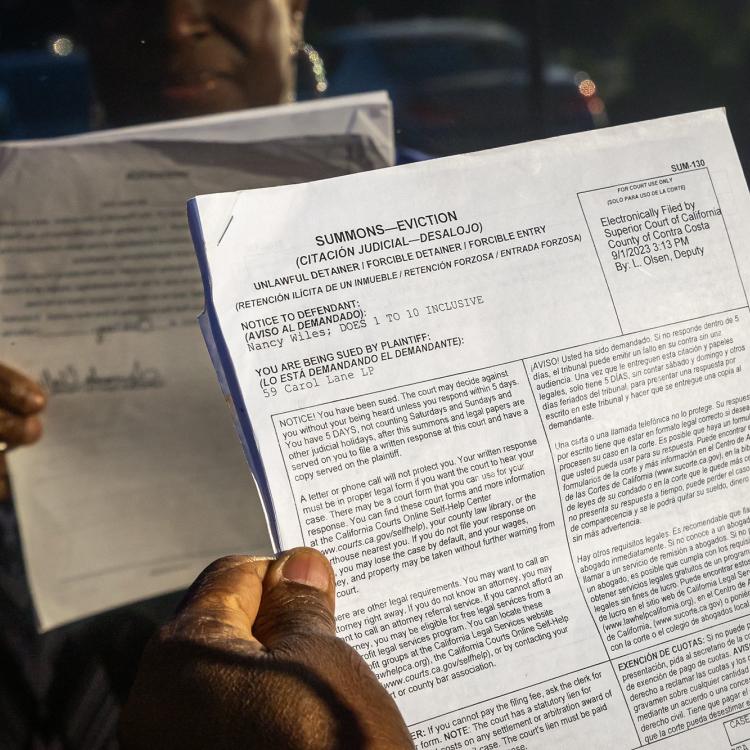 SUM-130
SUMMONS—EVICTION
(CITACIÓN JUDICIAL—DESALOJO)
UNLAWFUL DETAINER / FORCIBLE DETAINER / FORCIBLE ENTRY
(RETENCIÓN ILÍCITA DE UN INMUEBLE / RETENCIÓN FORZOSA / ENTRADA FORZOSA)
FOR COURT USE ONLY
(SOLO PARA USO DE LA CORTE)
Electronically Filed by
Superior Court of California
County of Contra Costa
9/1/2023 3:13 PM
By: L. Olsen, Deputy
NOTICE TO DEFENDANT:
(AVISO AL DEMANDADO):
Nancy Wiles; DOES 1 TO 10 INCLUSIVE
YOU ARE BEING SUED BY PLAINTIFF:
(LO ESTÁ DEMANDANDO EL DEMANDANTE):
59 Carol Lane LP
NOTICE! You have been sued. The court may decide against
you without your being heard unless you respond within 5 days.
You have 5 DAYS, not counting Saturdays and Sundays and
other judicial holidays, after this summons and legal papers are
served on you to file a written response at this court and have a
copy served on the plaintiff.
A letter or phone call will not protect you. Your written response
must be in proper legal form if you want the court to hear your
case. There may be a court form that you can use for your
response. You can find these court forms and more information
at the California Courts Online Self-Help Center
www.courts.ca.gov/selfhelp), your county law library, or the
thouse nearest you. If you do not file your response on
, you may lose the case by default, and your wages,
ey, and property may be taken without further warning from
court.
ere are other legal requirements. You may want to call an
torney right away. If you do not know an attorney, you may
nt to call an attorney referral service. If you cannot afford an
rney, you may be eligible for free legal services from a
rofit legal services program. You can locate these
ofit groups at the California Legal Services website
awhelpca.org), the California Courts Online Self-Help
www.courts.ca.gov/selfhelp), or by contacting your
rt or county bar association.
ER: If you cannot pay the filing fee, ask the clerk for
form. NOTE: The court has a statutory lien for
costs on any settlement or arbitration award of
il case. The court's lien must be paid
¡AVISO! Usted ha sido demandado. Si no responde dentro de 5
días, el tribunal puede emitir un fallo en su contra sin una
audiencia. Una vez que le entreguen esta citación y papeles
legales, solo tiene 5 DÍAS, sin contar sábado y domingo y otros
días feriados del tribunal, para presentar una respuesta por
escrito en este tribunal y hacer que se entregue una copia al
demandante.
Una carta o una llamada telefónica no lo protege. Su respuesta
por escrito tiene que estar en formato legal correcto si desea
procesen su caso en la corte. Es posible que haya un formul
que usted pueda usar para su respuesta. Puede encontrar
formularios de la corte y más información en el Centro de A
de las Cortes de California (www.sucorte.ca.gov), en la bib
de leyes de su condado o en la corte que le quede más ce
no presenta su respuesta a tiempo, puede perder el caso
de comparecencia y se le podrá quitar su sueldo, dinero
sin más advertencia.
Hay otros requisitos legales. Es recomendable que lla
abogado inmediatamente. Si no conoce a un abogado,
llamar a un servicio de remisión a abogados. Si no p
un abogado, es posible que cumpla con los requis
obtener servicios legales gratuitos de un program
legales sin fines de lucro. Puede encontrar estos
de lucro en el sitio web de California Legal Serv
(www.lawhelpcalifornia.org), en el Centro de A
de California, (www.sucorte.ca.gov) o poniénd
con la corte o el colegio de abogados local
EXENCIÓN DE CUOTAS: Si no puede p
presentación, pida al secretario de la c
de exención de pago de cuotas. AVIS
derecho a reclamar las cuotas y los
gravamen sobre cualquier cantidad
mediante un acuerdo o una conces
derecho civil. Tiene que pagar el
que la corte pueda desestimar e
CASE